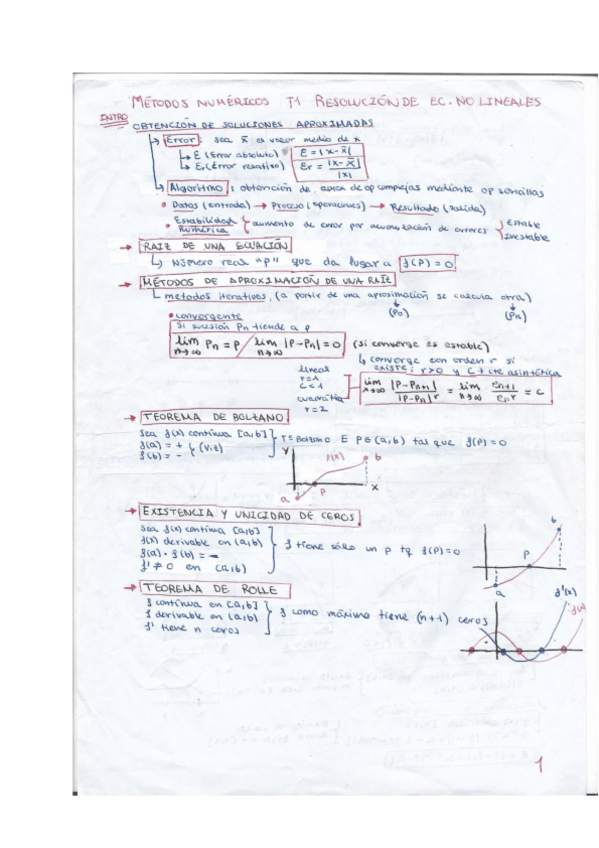 MÉTODOS NUMÉRICOS T1 RESOLUCIÓN DE EC. NO LINEALES
INTRO
OBTENCIÓN DE SOLUCIONES APROXIMADAS
Error: sea x̄ es valor medio de x
E (Error absoluto) E = |x - x̄|
Er (Error relativo) Er = |x - x̄| / |x|
Algoritmo: obtención de aprox de op complejas mediante op sencillas
Datos (entrada) → Proceso (operaciones) → Resultado (salida)
Estabilidad numérica { aumento de error por acumulación de errores { Estable
Inestable
RAIZ DE UNA ECUACIÓN
Número real "p" que da lugar a f(p) = 0
MÉTODOS DE APROXIMACIÓN DE UNA RAÍZ
metodos iterativos, (a partir de una aproximación se calcula otra)
(p0) (pn)
convergente
Si sucesión Pn tiende a p
lim n→∞ Pn = p / lim n→∞ |P - Pn| = 0 (si converge es estable)
converge con orden r si
existe: r>0 y C → cte asintótica
lineal
r=1
C<1
cuadrática
r=2
lim n→∞ |P - Pn+1| / |P - Pn|^r = lim n→∞ en+1 / en^r = C
TEOREMA DE BOLZANO
Sea f(x) continua [a,b]
f(a) = + } (V.i.z)
f(b) = -
T=Bolzano E p∈(a,b) tal que f(p)=0
y f(x) b
a p x
EXISTENCIA Y UNICIDAD DE CEROS
Sea f(x) continua [a,b]
f(x) derivable en (a,b)
f(a) · f(b) = -
f' ≠ 0 en (a,b)
f tiene sólo un p tq f(p)=0
b
p
a
TEOREMA DE ROLLE
f continua en [a,b]
f derivable en (a,b)
f' tiene n ceros
f como máximo tiene (n+1) ceros
f'(x)
1